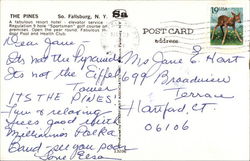 THE PINES So. Fallsburg, N. Y.
A fabulous resort hotel - elevator service -
Regulation 9 hole "Sportsman" golf course on
premises. Open the year round. Fabulous In-
door Pool and Health Club.
Dear Jane
Its not the Pyramids
Its not the Eiffel
Tower
ITS THE PINES.
Fun & relaxing
Food good with
Band see you
POST CARD
address
19 USA
Mrs Jane E. Hart
699 Broadview
Terrace
Hartford, Ct.
06106